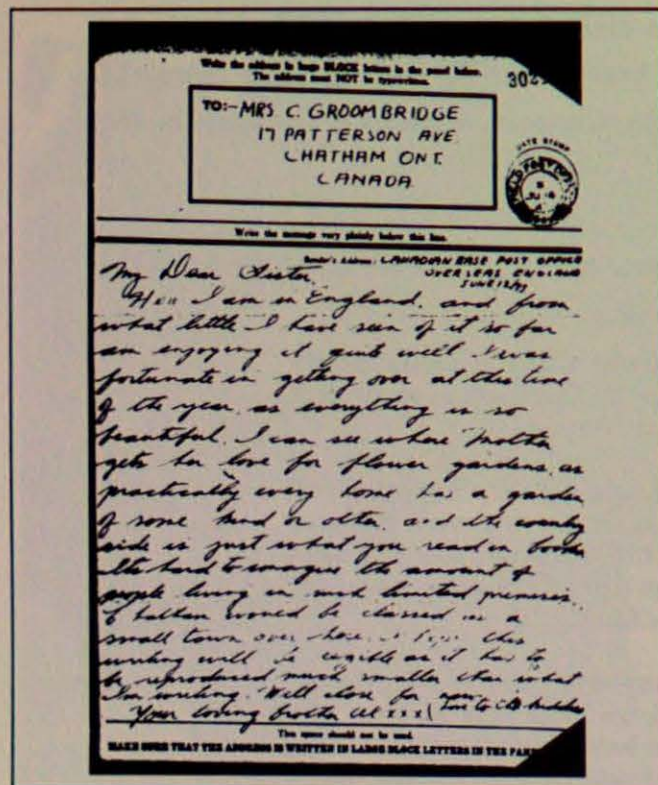 Write the address in large BLOCK letters in the panel below.
The address must NOT be typewritten.
302
TO:- MRS. C. GROOMBRIDGE
17 PATTERSON AVE
CHATHAM ONT.
CANADA
DATE STAMP
Write the message very plainly below this line.
Sender's Address: CANADIAN BASE POST OFFICE
OVERSEAS ENGLAND
JUNE 12/43
My Dear Sister.
Here I am in England, and from
what little I have seen of it so far
am enjoying it quite well I was
fortunate in getting over at this time
of the year, as everything is so
beautiful. I can see where Mother
gets her love for flower gardens, as
practically every home has a garden
of some kind or other, and the country
side is just what you read in books
Its hard to imagine the amount of
people living in such limited premises.
Chatham would be classed as a
small town over here. I hope this
writing will be legible as it has to
be reproduced much smaller than what
I'm writing. Will close for now
Your loving brother Al xxx (
This space should not be used.
MAKE SURE THAT THE ADDRESS IS WRITTEN IN LARGE BLOCK LETTERS IN THE PANEL